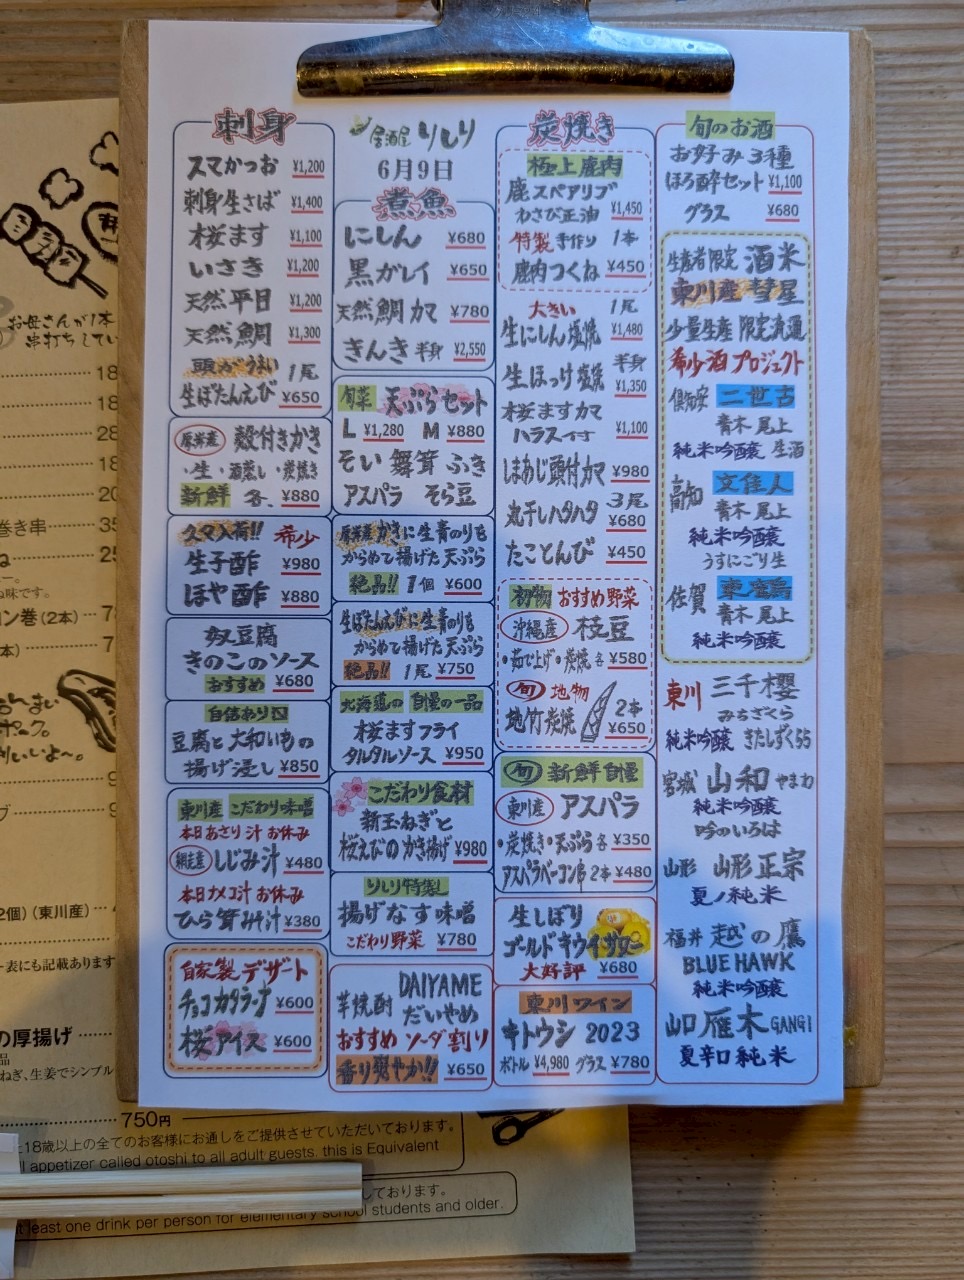 刺身
スマかつお ¥1,200
刺身生さば ¥1,400
桜ます ¥1,100
いさき ¥1,200
天然平目 ¥1,200
天然鯛 ¥1,300
頭がうまい 1尾
生ぼたんえび ¥650
厚岸産 殻付きかき
・生・酒蒸し・炭焼き
新鮮 各 ¥880
久々入荷!! 希少
生子酢 ¥980
ほや酢 ¥880
奴豆腐
きのこのソース
おすすめ ¥680
自信あり
豆腐と大和いもの
揚げ浸し ¥850
東川産 こだわり味噌
本日あさり汁 お休み
網走産 しじみ汁 ¥480
本日ナメコ汁 お休み
ひら茸みそ汁 ¥380
自家製デザート
チョコカタラーナ ¥600
桜アイス ¥600
居酒屋 りしり
6月9日
煮魚
にしん ¥680
黒ガレイ ¥650
天然鯛カマ ¥780
きんき 半身 ¥2,550
旬菜 天ぷらセット
L ¥1,280 M ¥880
そい 舞茸 ふき
アスパラ そら豆
厚岸産かきに生青のりを
からめて揚げた天ぷら
絶品!! 1個 ¥600
生ぼたんえびに生青のりを
からめて揚げた天ぷら
絶品!! 1尾 ¥750
北海道の自慢の一品
桜ますフライ
タルタルソース ¥950
こだわり食材
新玉ねぎと
桜えびのかき揚げ ¥980
りしり特製
揚げなす味噌
こだわり野菜 ¥780
芋焼酎 DAIYAME
だいやめ
おすすめ ソーダ割り
香り爽やか!! ¥650
炭焼き
極上鹿肉
鹿スペアリブ
わさび正油 ¥1,450
特製 手作り 1本
鹿肉つくね ¥450
大きい 1尾
生にしん塩焼 ¥1,480
半身
生ほっけ塩焼 ¥1,350
桜ますカマ
ハラス付 ¥1,100
はあじ頭付カマ ¥980
丸干しハタハタ 3尾
¥680
たことんび ¥450
初物 おすすめ野菜
沖縄産 枝豆
・茹で上げ・炭焼 各 ¥580
旬 地物
地竹炭焼 2本
¥650
旬 新鮮自慢
東川産 アスパラ
・炭焼き・天ぷら 各 ¥350
アスパラベーコン串 2本 ¥480
生しぼり
ゴールドキウイサワー
大好評 ¥680
東川ワイン
キトウシ 2023
ボトル ¥4,980 グラス ¥780
旬のお酒
お好み3種
ほろ酔セット ¥1,100
グラス ¥680
生産者限定 酒米
東川産 彗星
少量生産 限定流通
希少酒プロジェクト
倶知安 二世古
青木 尾上
純米吟醸 生酒
高知 文佳人
青木 尾上
純米吟醸
うすにごり生
佐賀 東鶴
青木 尾上
純米吟醸
東川 三千櫻
みちざくら
純米吟醸 きたしずく55
宮城 山和 やまわ
純米吟醸
吟のいろは
山形 山形正宗
夏ノ純米
福井 越の鷹
BLUE HAWK
純米吟醸
山口 雁木 GANGI
夏辛口純米
お母さんが1本
巻き串
巻(2本)
2個)(東川産)
表にも記載あります
の厚揚げ
ねぎ、生姜でシンプル
750円
18歳以上の全てのお客様にお通しをご提供させていただいております。
appetizer called otoshi to all adult guests. this is Equivalent
しております。
least one drink per person for elementary school students and older.